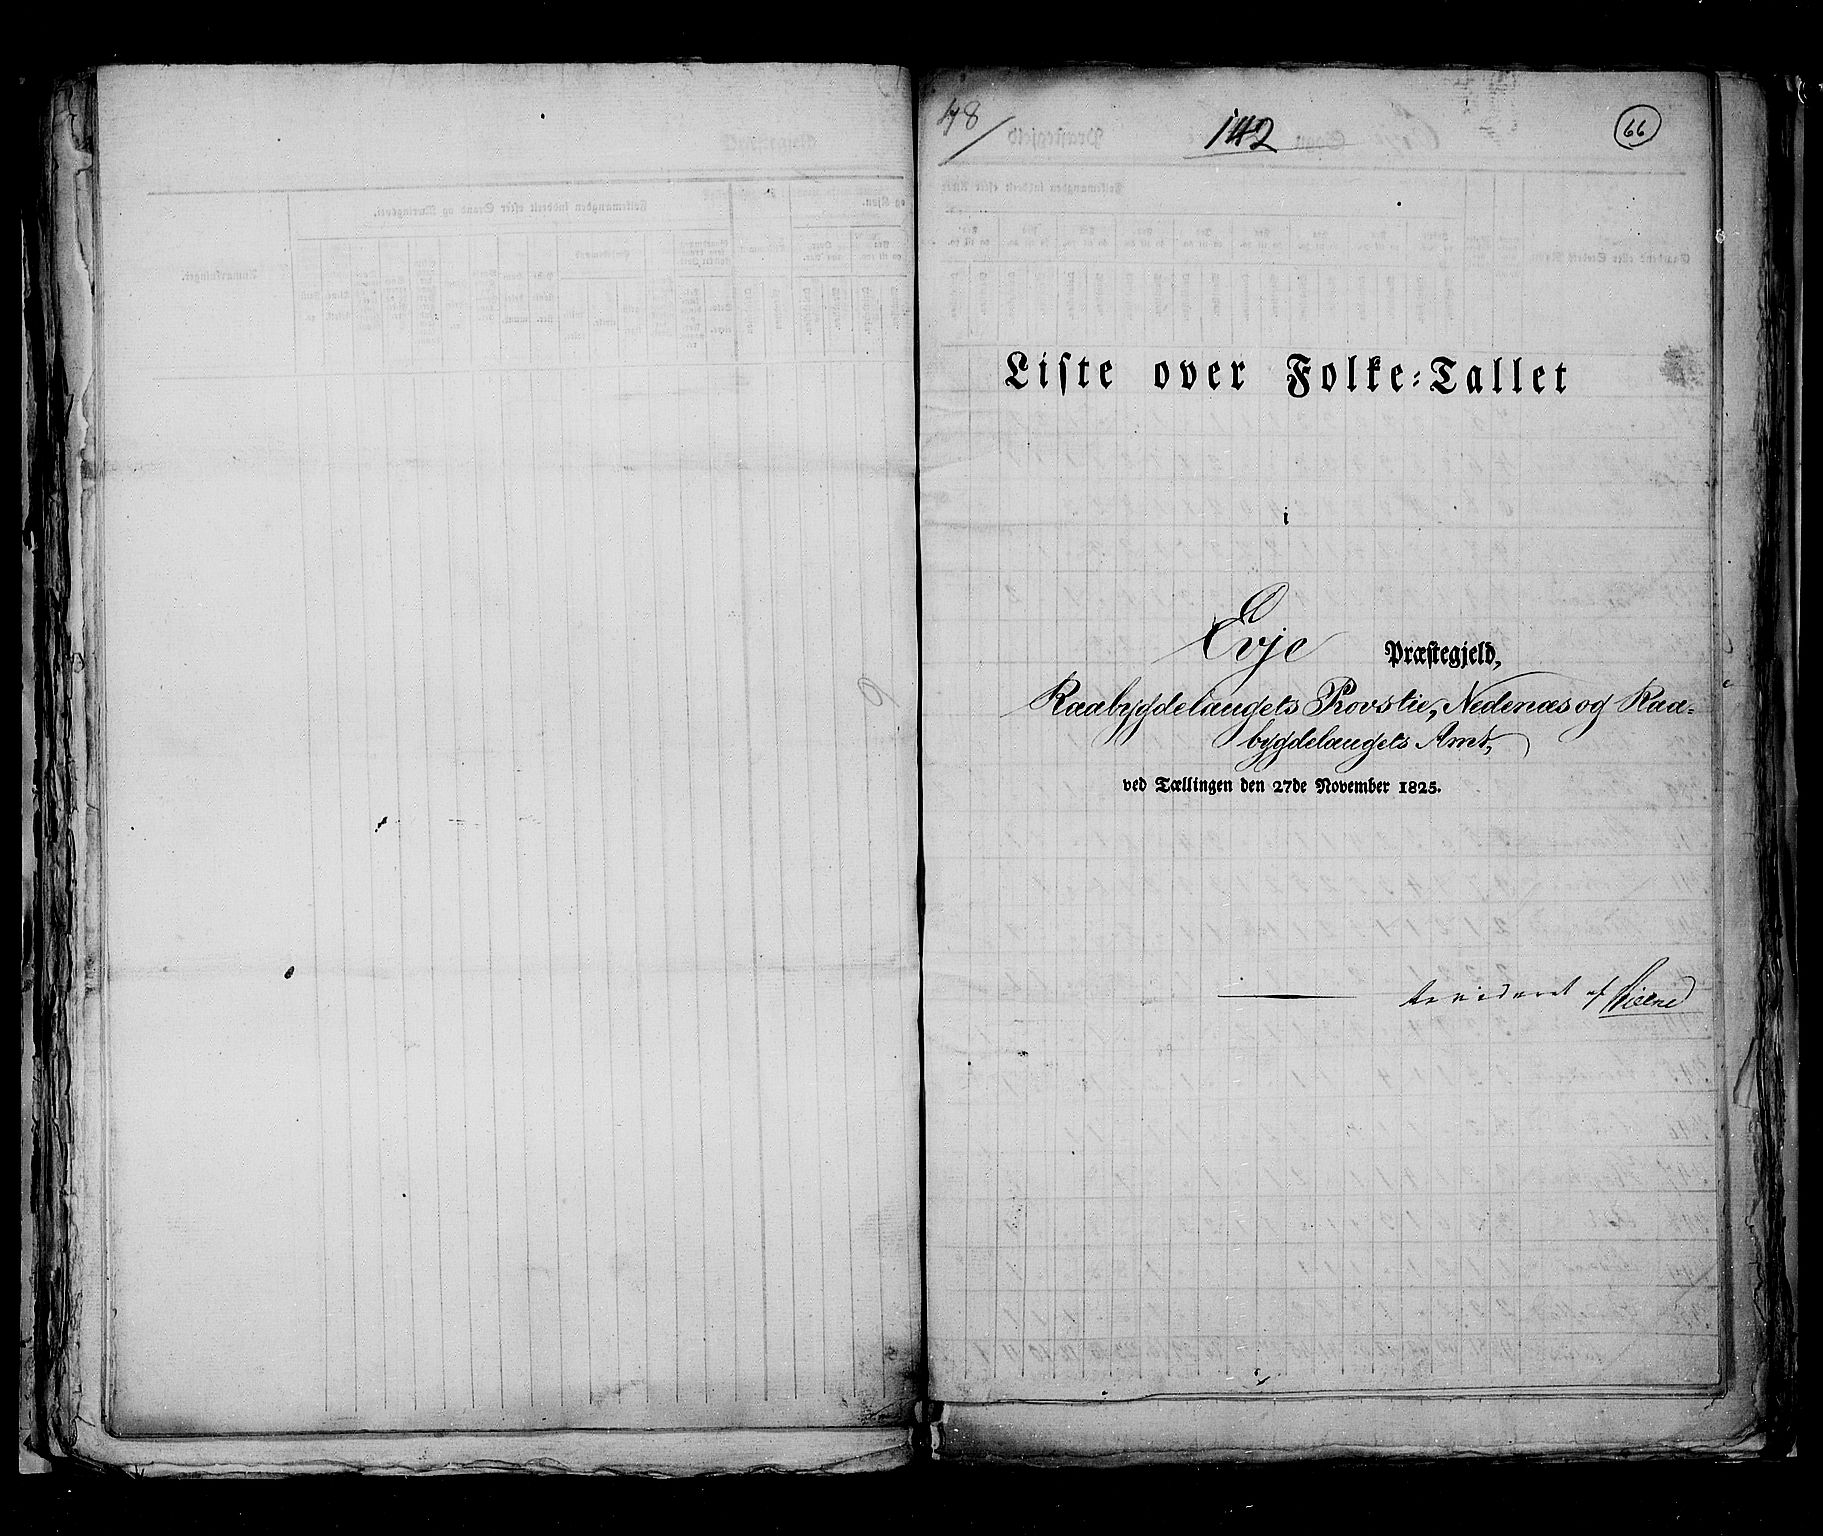 48
142
66
Liste over Folke-Tallet
i
Evje Præstegjeld,
Raabygdelaugets Provstie, Nedenæs og Raa=
bygdelaugets Amt,
ved Tællingen den 27de November 1825.
Revideret af